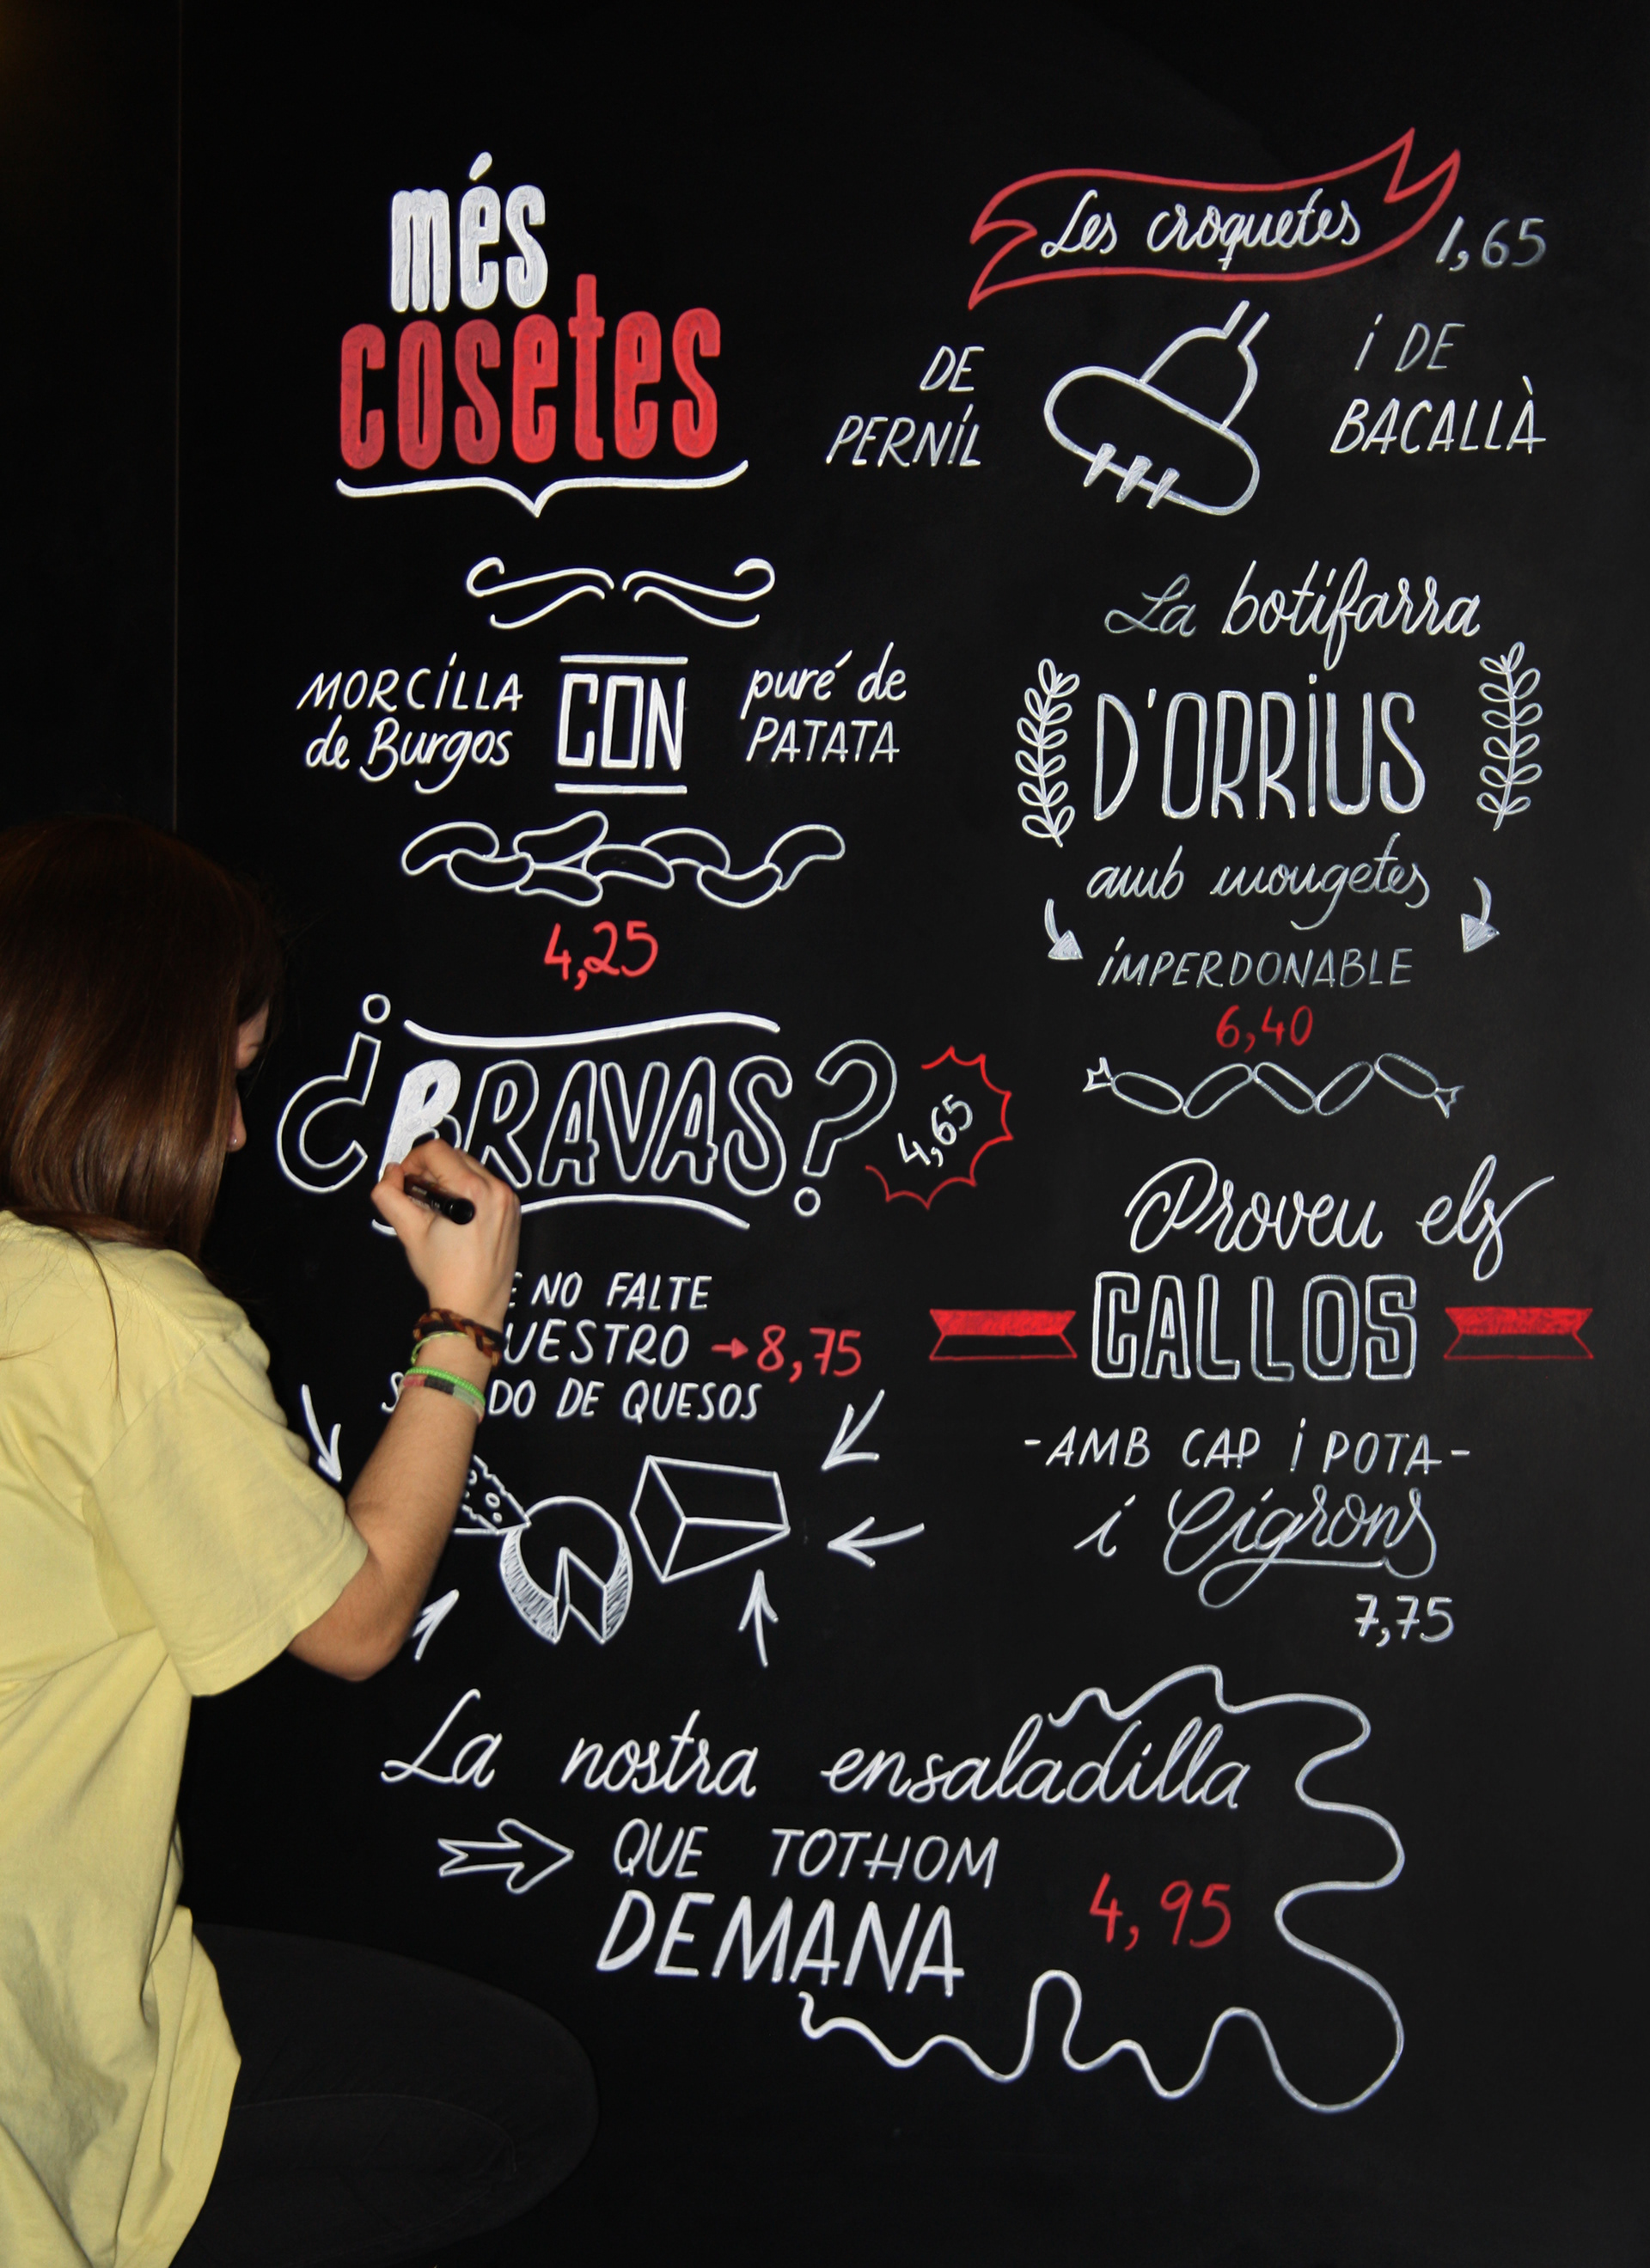 més
cosetes
MORCILLA
de Burgos
CON
puré de
PATATA
4,25
¿BRAVAS?
4,65
NO FALTE
8,75
DE QUESOS
Les croquetes
1,65
DE
PERNIL
i DE
BACALLÀ
La botifarra
D'ORRIUS
amb mongetes
IMPERDONABLE
6,40
Proveu els
CALLOS
-AMB CAP i POTA-
i Cigrons
7,75
La nostra ensaladilla
QUE TOTHOM
DEMANA
4,95